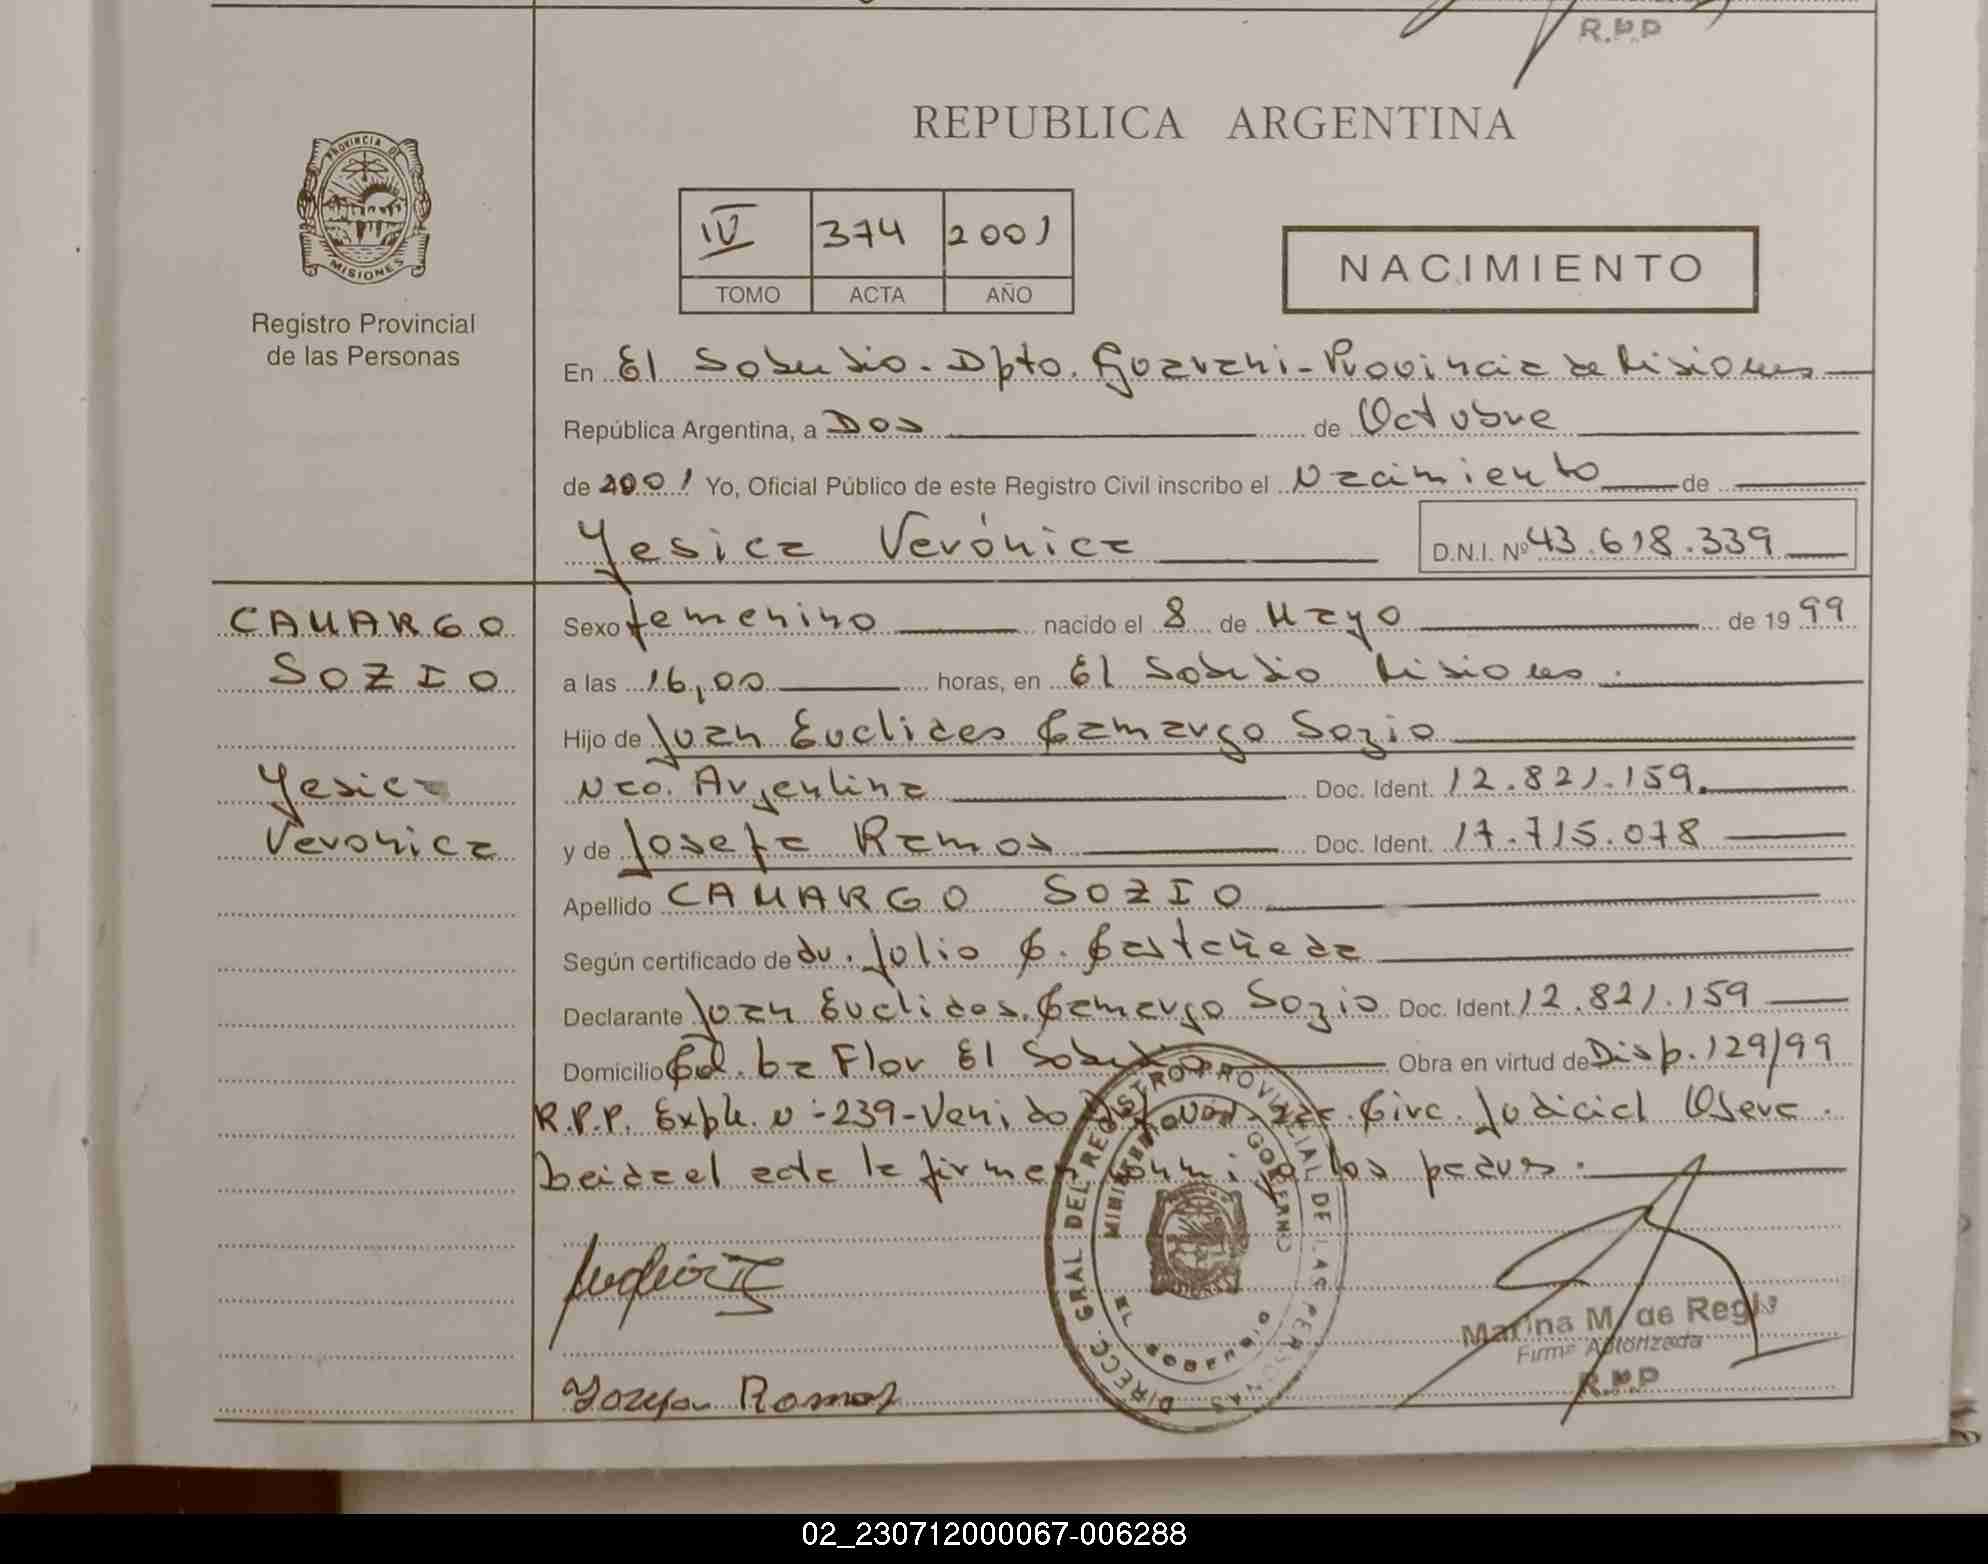 R.P.P
REPUBLICA ARGENTINA
PROVINCIA DE
MISIONES
Registro Provincial
de las Personas
IV 374 2001
TOMO ACTA AÑO
NACIMIENTO
En El Soberbio - Dpto. Guarani - Provincia de Misiones
República Argentina, a Dos de Octubre
de 2001 Yo, Oficial Público de este Registro Civil inscribo el Nacimiento de
Yesica Verónica D.N.I. Nº 43.618.339
CAMARGO
SOZIO
Yesica
Veronica
Sexo femenino nacido el 8 de Mayo de 1999
a las 16,00 horas, en El Soberbio Misiones.
Hijo de Juan Euclides Camargo Sozio
Nac. Argentina Doc. Ident. 12.821.159.
y de Josefa Ramos Doc. Ident. 17.715.078
Apellido CAMARGO SOZIO
Según certificado de dr. Julio C. Castañeda
Declarante Juan Euclides Camargo Sozio Doc. Ident. 12.821.159
Domicilio Col. La Flor El Soberbio Obra en virtud de Disp. 129/99
R.P.P. Expte. N: 239 - Venido 2da. Circ. Judicial Obera.
Leida el acta la firman conmigo los padres.
DIRECC. GRAL DEL REGISTRO PROVINCIAL DE LAS PERSONAS
GOBIERNO
EL SOBERBIO
Marina M. de Regis
Firma Autorizada
R.P.P
Ramos
02_230712000067-006288